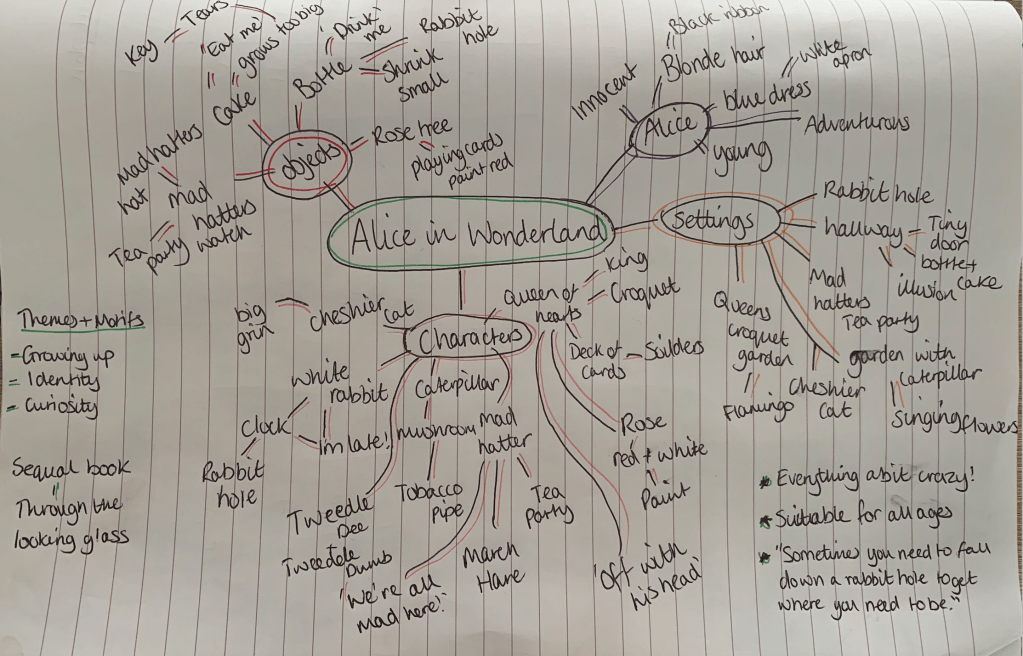 Alice in Wonderland
objects
Key
Tears
'Eat me'
grows too big
Cake
'Drink
me'
Bottle
Rabbit
hole
Shrink
small
Rose tree
playing cards
paint red
Mad hatters
hat
mad
hatters
watch
Tea
party
Alice
Innocent
Black ribbon
Blonde hair
White
apron
blue dress
Adventurous
young
Settings
Rabbit hole
hallway
Tiny
door
bottle+
cake
illusion
Mad
hatters
Tea party
garden with
Caterpillar
Singing flowers
Cheshier
Cat
Queens
Croquet
garden
Flamingo
Characters
Cheshier
cat
big
grin
White
rabbit
Clock
im late!
Rabbit
hole
Tweedle
Dee
Tweedele
Dumb
Caterpillar
mushroom
Tobacco
pipe
mad
hatter
Tea
Party
March
Hare
"We're all
mad here!"
Queen of
hearts
King
Croquet
Deck of
cards
Soilders
Rose
red + white
Paint
'Off with
his head'
Themes + Motifs
- Growing up
- Identity
- Curiosity
Sequal book
Through the
looking glass
* Everything a bit crazy!
* Suitiable for all ages
* "Sometimes you need to fall
down a rabbit hole to get
where you need to be."